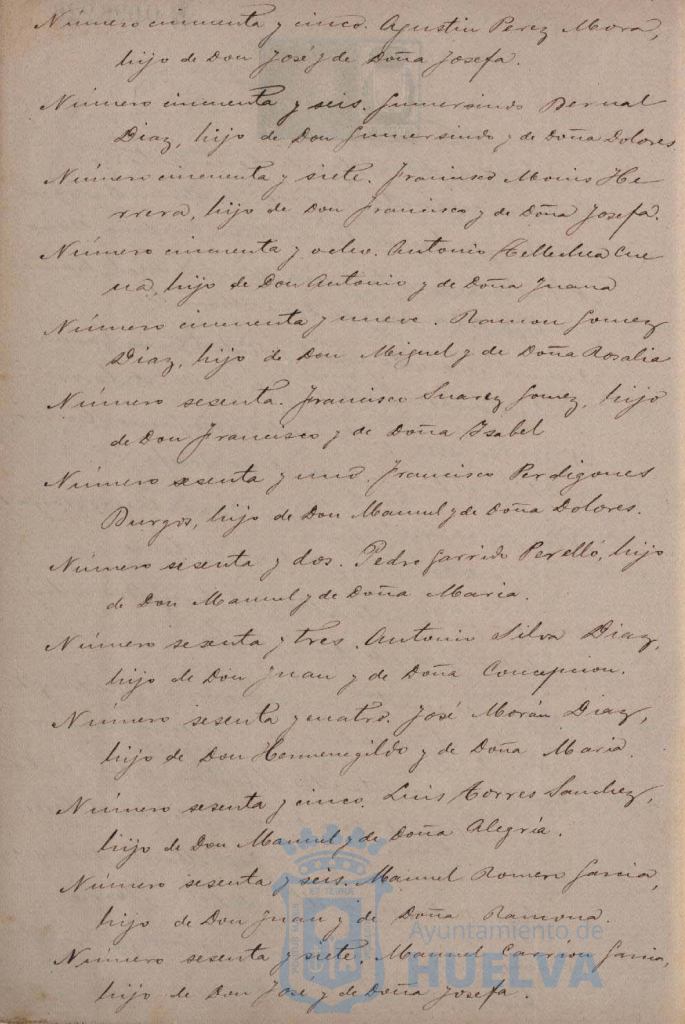 Número cincuenta y cinco. Agustin Perez Mora,
hijo de Don José y de Doña Josefa.
Número cincuenta y seis. Gumersindo Bernal
Diaz, hijo de Don Gumersindo y de Doña Dolores
Número cincuenta y siete. Francisco Monis He-
rrera, hijo de Don Francisco y de Doña Josefa.
Número cincuenta y ocho. Antonio Tellechea Cue
va, hijo de Don Antonio y de Doña Juana
Número cincuenta y nueve. Ramon Gomez
Diaz, hijo de Don Miguel y de Doña Rosalia
Número sesenta. Francisco Suarez Gomez, hijo
de Don Francisco y de Doña Isabel
Número sesenta y uno. Francisco Perdigones
Burgos, hijo de Don Manuel y de Doña Dolores.
Número sesenta y dos. Pedro Garrido Perelló, hijo
de Don Manuel y de Doña Maria.
Número sesenta y tres. Antonio Silva Diaz,
hijo de Don Juan y de Doña Concepcion.
Número sesenta y cuatro. José Morán Diaz,
hijo de Don Hermenegildo y de Doña Maria.
Número sesenta y cinco. Luis Torres Sanchez,
hijo de Don Manuel y de Doña Alegría.
Número sesenta y seis. Manuel Romero Garcia,
hijo de Don Juan y de Doña Ramona.
Número sesenta y siete. Manuel Carrion Garcia,
hijo de Don José y de Doña Josefa.
Ayuntamiento de
HUELVA